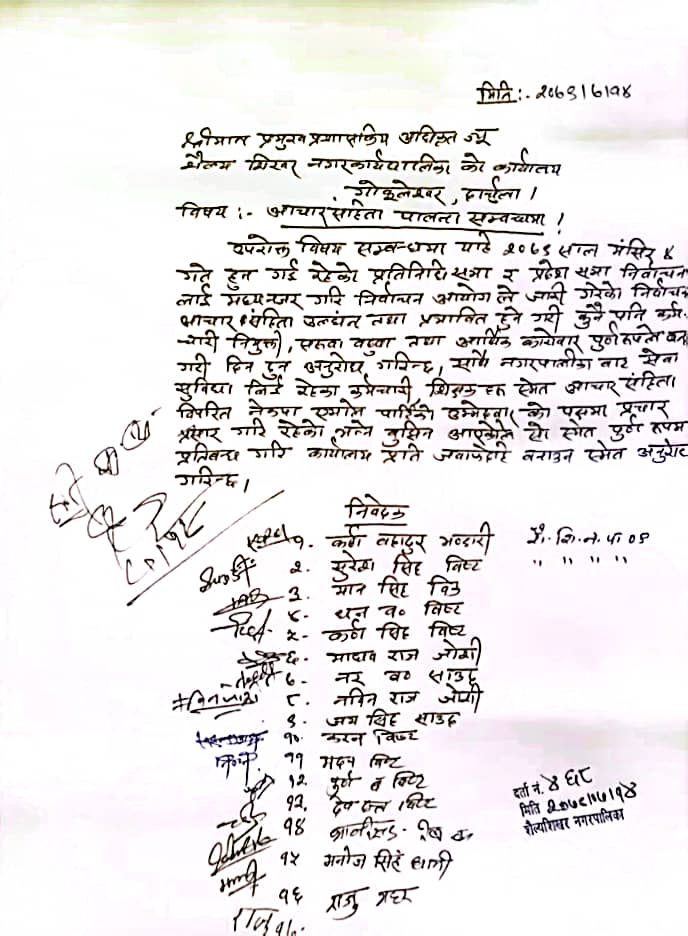 मिति :- २०७९।७।१४
श्रीमान प्रमुख प्रशासकिय अधिकृत ज्यू
शैल्य शिखर नगरकार्यपालिका को कार्यालय
गोकुलेश्वर, दार्चुला ।
विषय :- आचार संहिता पालना सम्बन्धमा ।
उपरोक्त विषय सम्बन्धमा यही २०७९ साल मंसिर ४
गते हुन गई रहेको प्रतिनिधि सभा र प्रदेश सभा निर्वाचन
लाई मध्यनजर गरि निर्वाचन आयोग ले जारी गरेको निर्वाचन
आचार संहिता उल्लंघन तथा प्रभावित हुने गरी कुनै पनि कर्म-
चारी नियुक्ती, सरूवा बढुवा तथा आर्थिक कारोवार पुर्णरूपले बन्द
गरी दिन हुन अनुरोध गरिन्छ, साथै नगरपालीका बाट सेवा
सुविधा लिई रहेका कर्मचारी, शिक्षक हरू समेत आचार संहिता
विपरित नेकपा एमाले पार्टीका उम्मेदवार को पक्षमा प्रचार
प्रसार गरि रहेको भन्ने बुझिन आएकोले सो समेत पुर्ण रूपमा
प्रतिबन्ध गरि कार्यालय प्रति जवाफदेहि बनाउन समेत अनुरोध
गरिन्छ ।
निवेदक
१. कर्ण बहादुर भण्डारी शै. शि. न. पा ०९
२. सुरेश सिंह विष्ट " " " "
३. मान सिंह विष्ट
४. धन ब० विष्ट
५. कर्ण सिंह विष्ट
६. माधव राज जोशी
७. नर ब० साउद
८. नविन राज जोशी
९. जय सिंह साउद
१०. करन विष्ट
११ मदन विष्ट
१२ पुर्ण ब विष्ट
१३. देव दत्त विष्ट
१४
१५ मनोज सिंह धामी
१६ राजु
दर्ता नं. ४६८
मिति २०७९/०७/१४
शैल्यशिखर नगरपालिका